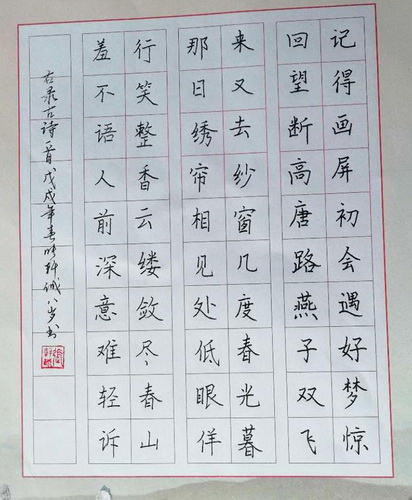 记得画屏初会遇好梦惊
回望断高唐路燕子双飞
来又去纱窗几度春光暮
那日绣帘相见处低眼佯
行笑整香云缕敛尽春山
羞不语人前深意难轻诉
右录古诗一首戊戌年春 八岁书